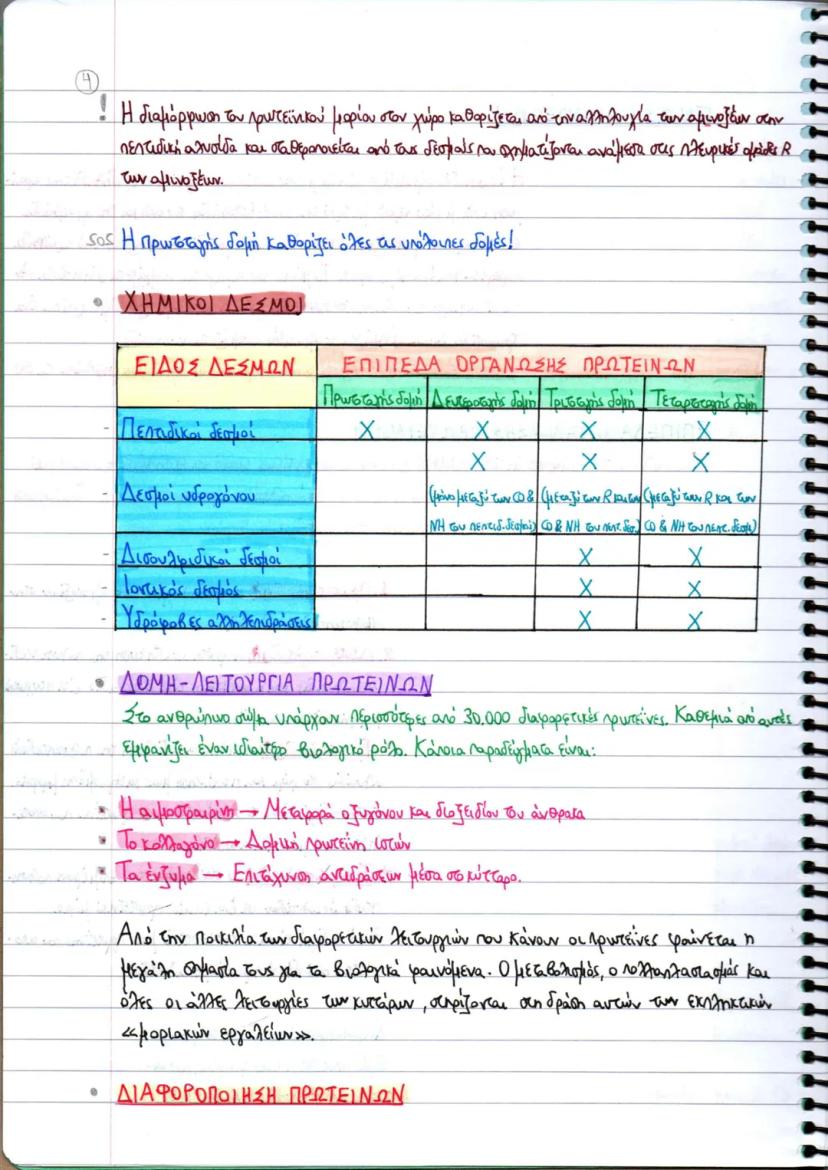 4
! Η διαμόρφωση του πρωτεϊνικού μορίου στον χώρο καθορίζεται από την αλληλουχία των αμινοξέων στην
πεπτιδική αλυσίδα και σταθεροποιείται από τους δεσμούς που σχηματίζονται ανάμεσα στις πλευρικές ομάδες R
των αμινοξέων.
SOS Η πρωτοταγής δομή καθορίζει όλες τις υπόλοιπες δομές!
• ΧΗΜΙΚΟΙ ΔΕΣΜΟΙ
ΕΙΔΟΣ ΔΕΣΜΩΝ ΕΠΙΠΕΔΑ ΟΡΓΑΝΩΣΗΣ ΠΡΩΤΕΙΝΩΝ
Πρωτοταγής δομή Δευτεροταγής δομή Τριτοταγής δομή Τεταρτοταγής δομή
- Πεπτιδικοί δεσμοί X X X X
X X X
- Δεσμοί υδρογόνου (μόνο μεταξύ των CO & (μεταξύ των R και των (μεταξύ των R και των
NH του πεπτιδ. δεσμού) CO & NH του πεπτ. δεσ.) CO & NH του πεπτ. δεσμ)
- Δισουλφιδικοί δεσμοί X X
- Ιοντικός δεσμός X X
- Υδρόφοβες αλληλεπιδράσεις X X
• ΔΟΜΗ-ΛΕΙΤΟΥΡΓΙΑ ΠΡΩΤΕΙΝΩΝ
Στο ανθρώπινο σώμα υπάρχουν περισσότερες από 30.000 διαφορετικές πρωτεΐνες. Καθεμιά από αυτές
εμφανίζει έναν ιδιαίτερο βιολογικό ρόλο. Κάποια παραδείγματα είναι:
• Η αιμοσφαιρίνη → Μεταφορά οξυγόνου και διοξειδίου του άνθρακα
• Το κολλαγόνο → Δομική πρωτεΐνη ιστών
• Τα ένζυμα → Επιτάχυνση αντιδράσεων μέσα στο κύτταρο.
Από την ποικιλία των διαφορετικών λειτουργιών που κάνουν οι πρωτεΐνες φαίνεται η
μεγάλη σημασία τους για τα βιολογικά φαινόμενα. Ο μεταβολισμός, ο πολλαπλασιασμός και
όλες οι άλλες λειτουργίες των κυττάρων, στηρίζονται στη δράση αυτών των εκπληκτικών
«μοριακών εργαλείων».
• ΔΙΑΦΟΡΟΠΟΙΗΣΗ ΠΡΩΤΕΙΝΩΝ